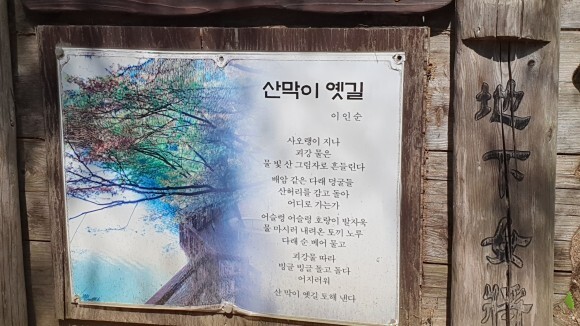 산막이 옛길
이인순
사오랭이 지나
괴강 물은
물 빛 산 그림자로 흔들린다
배암 같은 다래 덩굴들
산허리를 감고 돌아
어디로 가는가
어슬렁 어슬렁 호랑이 발자욱
물 마시러 내려온 토끼 노루
다래 순 베어 물고
괴강물 따라
빙글 빙글 돌고 돌다
어지러워
산 막이 옛길 토해 낸다
地下女將